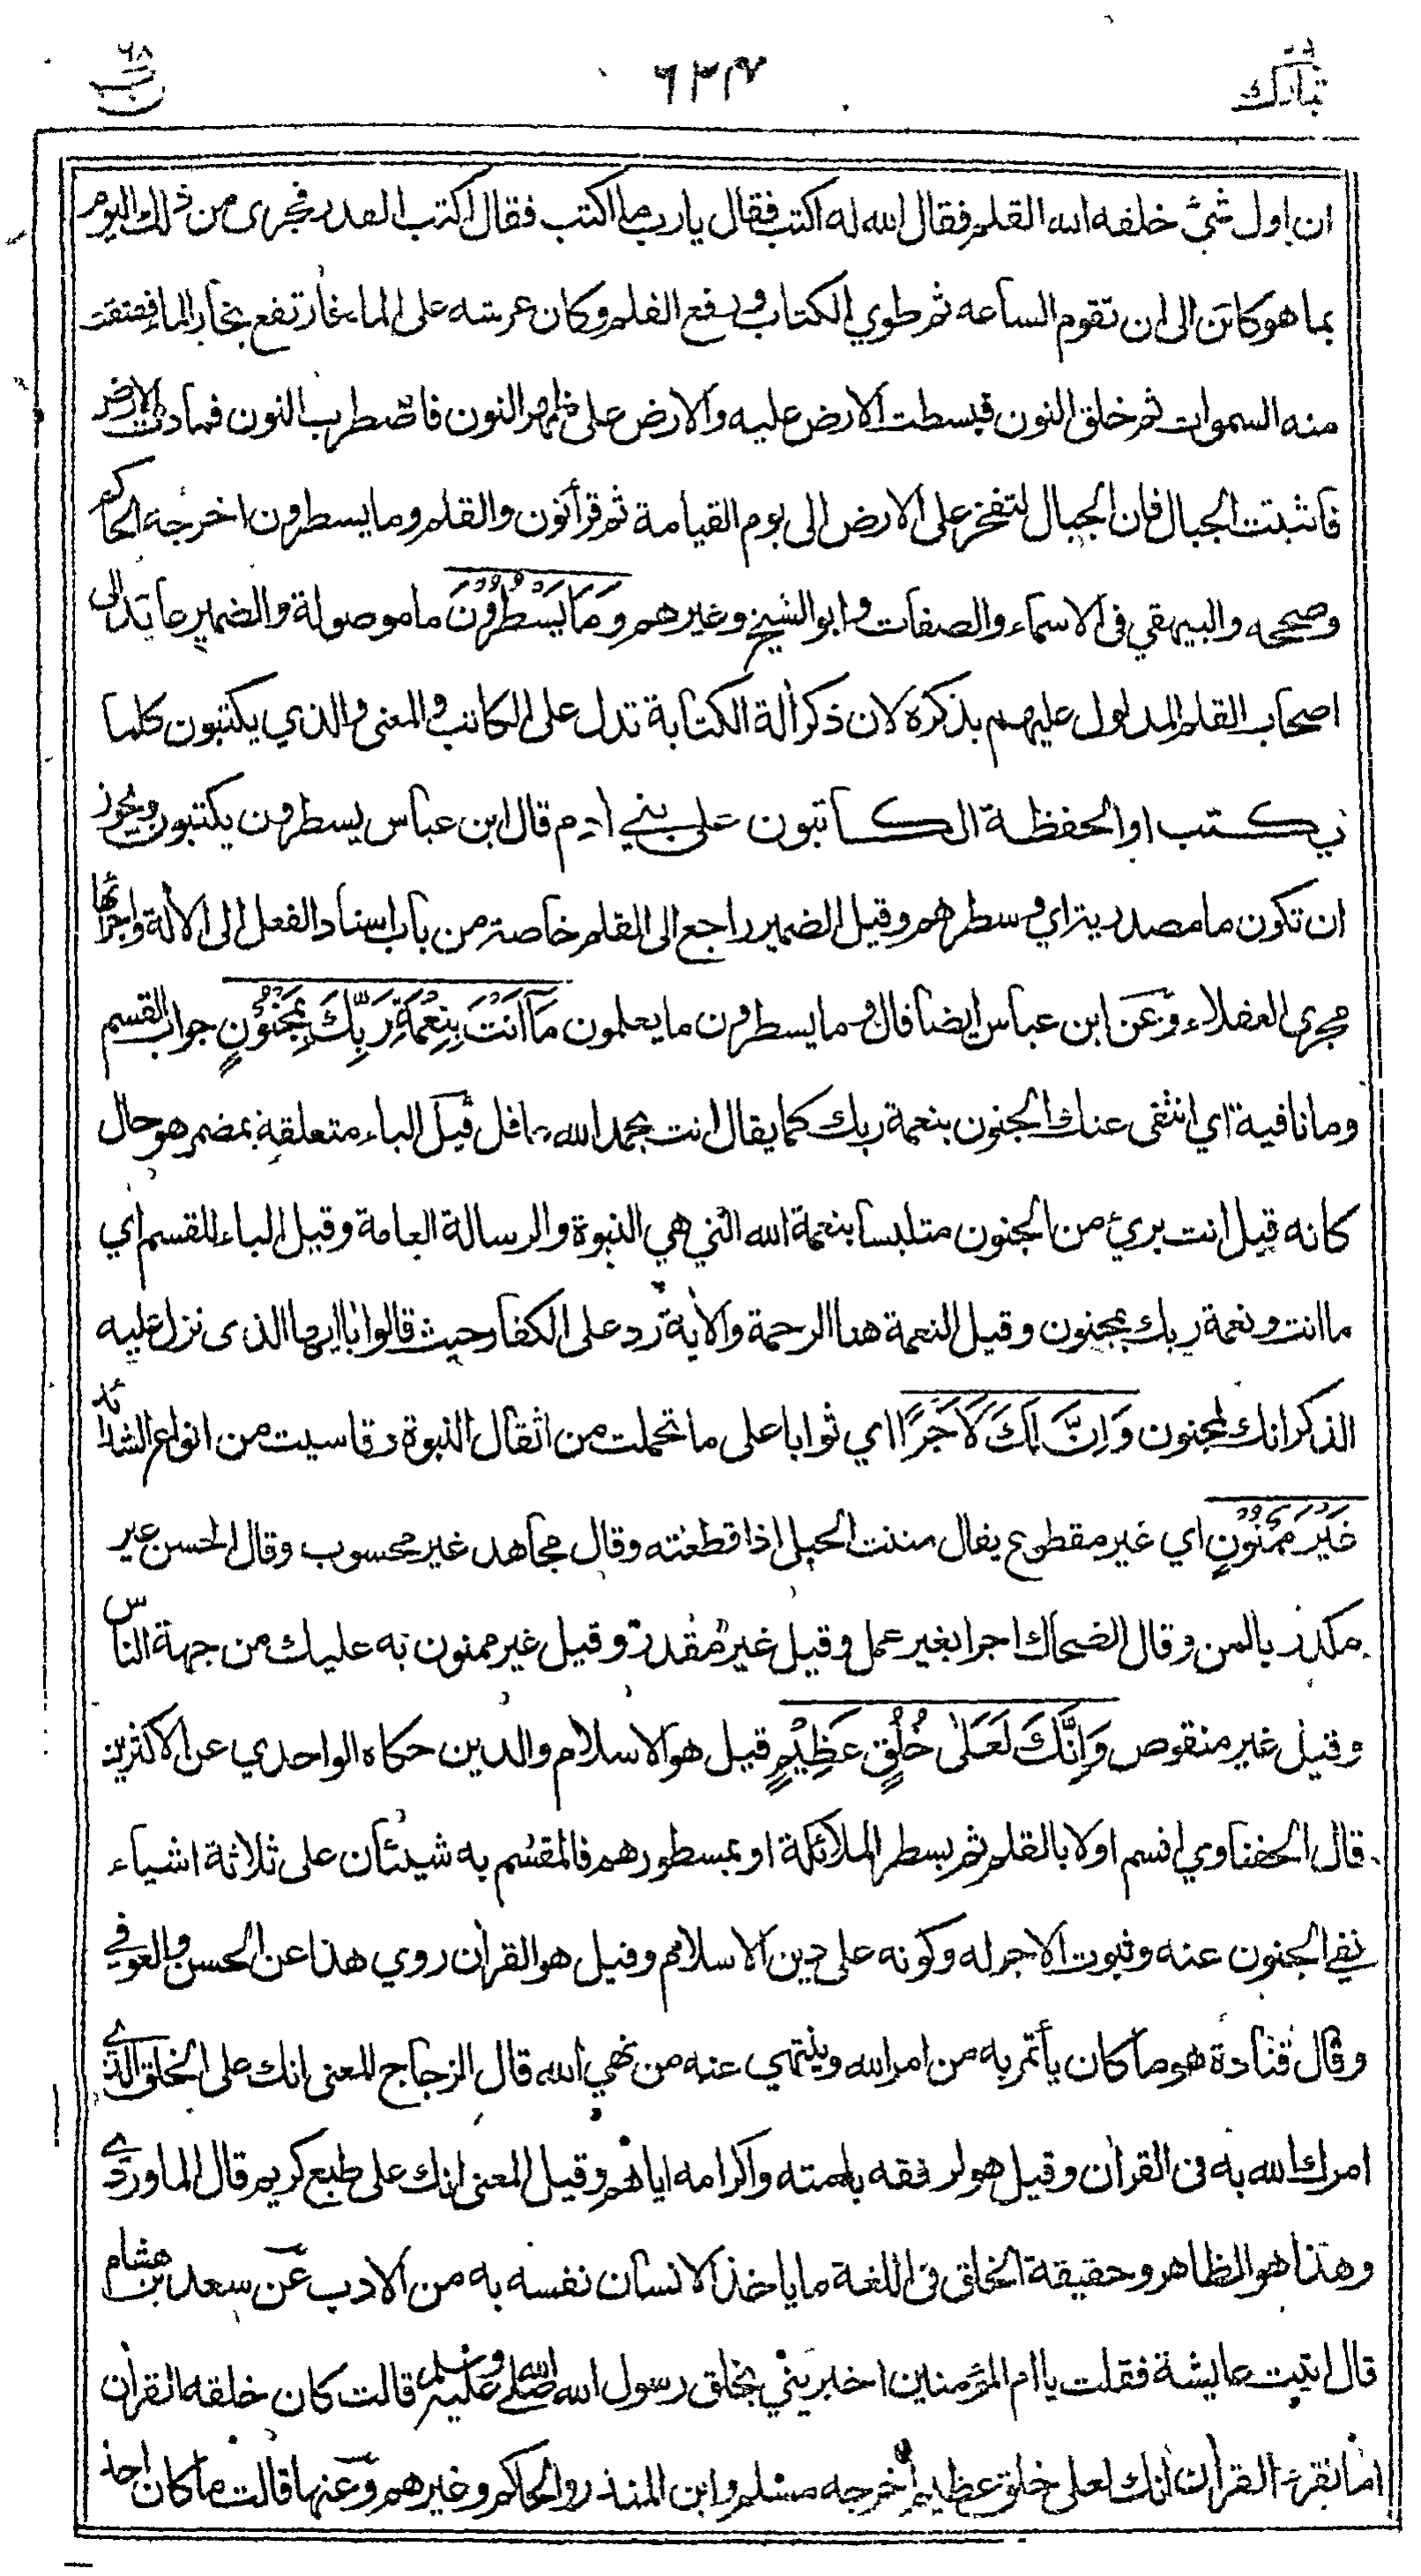 تبارك ٢٩
٦٣٤
ن ٦٨
ان اول شئ خلقه الله القلم فقال الله له اكتب فقال يا رب ما اكتب فقال اكتب القدر فجرى من ذلك اليوم
بما هو كائن الى ان تقوم الساعه ثم طوي الكتاب ورفع القلم وكان عرشه على الماء فارتفع بخار الماء ففتقت
منه السموات ثم خلق النون فبسطت الارض عليه والارض على ظهر النون فاضطرب النون فمادت الارض
فاثبتت الجبال فان الجبال لتفخر على الارض الى يوم القيامة ثم قرأ نون والقلم وما يسطرون اخرجه الحاكم
وصححه والبيهقي في الاسماء والصفات وابو الشيخ وغيرهم وَمَا يَسْطُرُونَ ما موصولة والضمير عايد الى
اصحاب القلم المدلول عليهم بذكره لان ذكر ألة الكتابة تدل على الكاتب والمعنى والذي يكتبون كلما
يكتب او الحفظة الكاتبون على بني ادم قال ابن عباس يسطرون يكتبون ويجوز
ان تكون ما مصدرية اي وسطرهم وقيل الضمير راجع الى القلم خاصة من باب اسناد الفعل الى الألة واجرائها
مجرى العقلاء وعن ابن عباس ايضا قال وما يسطرون ما يعلمون مَآ اَنْتَ بِنِعْمَةِ رَبِّكَ بِمَجْنُوْنٍ جواب القسم
وما نافية اي انتفى عنك الجنون بنعمة ربك كما يقال انت بحمد الله عاقل قيل الباء متعلقة بمضمر هو حال
كانه قيل انت برئ من الجنون متلبسا بنعمة الله التي هي النبوة والرسالة العامة وقيل الباء للقسم اي
ما انت ونعمة ربك بمجنون وقيل النعمة هنا الرحمة والأية رد على الكفار حيث قالوا يا ايها الذى نزل عليه
الذكر انك لمجنون وَاِنَّ لَكَ لَاَجْرًا اي ثوابا على ما تحملت من اثقال النبوة وقاسيت من انواع الشدائد
غَيْرَ مَمْنُوْنٍ اي غير مقطوع يقال مننت الحبل اذا قطعته وقال مجاهد غير محسوب وقال الحسن غير
مكدر بالمن وقال الضحاك اجرا بغير عمل وقيل غير مقدر وقيل غير ممنون به عليك من جهة الناس
وقيل غير منقوص وَاِنَّكَ لَعَلٰى خُلُقٍ عَظِيْمٍ قيل هو الاسلام والدين حكاه الواحدي عن الاكثرين
قال الحفناوي اقسم اولا بالقلم ثم بسطر الملائكة او بمسطورهم فالمقسم به شيئان على ثلاثة اشياء
نفي الجنون عنه وثبوت الاجر له وكونه على دين الاسلام وقيل هو القرأن روي هذا عن الحسن والعوفي
وقال قتادة هو ما كان يأتمر به من امر الله وينتهي عنه من نهي الله قال الزجاج المعنى انك على الخلق الذي
امرك الله به في القرأن وقيل هو رفقه بامته واكرامه اياهم وقيل المعنى انك على طبع كريم قال الماوردي
وهذا هو الظاهر وحقيقة الخلق في اللغة ما ياخذ الانسان نفسه به من الادب عن سعد بن هشام
قال اتيت عايشة فقلت يا ام المؤمنين اخبريني بخلق رسول الله صلى الله عليه وسلم قالت كان خلقه القرأن
اما تقرء القرأن انك لعلى خلق عظيم اخرجه مسلم وابن المنذر والحاكم وغيرهم وعنها قالت ما كان احد